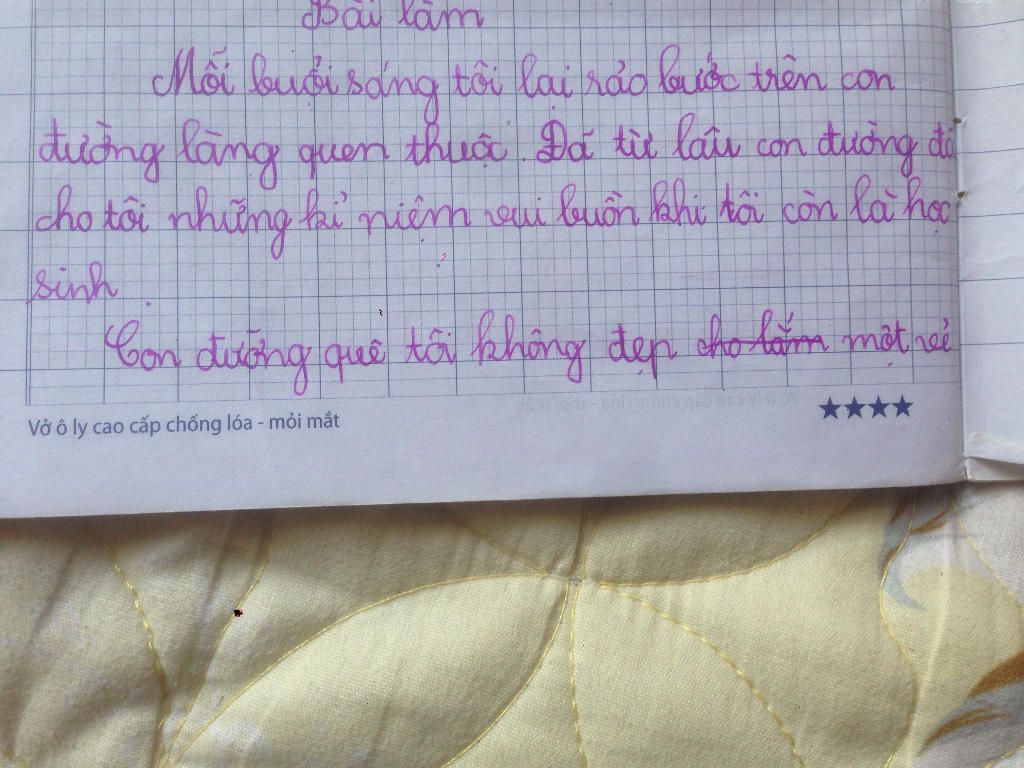 Bài làm
Mỗi buổi sáng tôi lại rảo bước trên con
đường làng quen thuộc. Đã từ lâu con đường đã
cho tôi những kỉ niệm vui buồn khi tôi còn là học
sinh.
Con đường quê tôi không đẹp cho lắm một vẻ
Vở ô ly cao cấp chống lóa - mỏi mắt